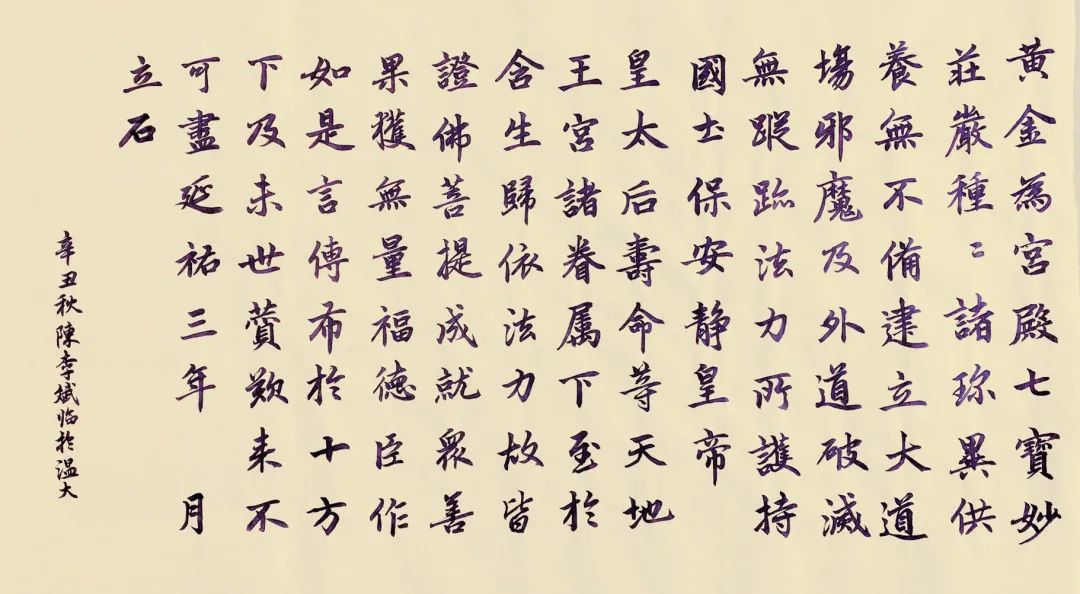 黃金為宮殿七寶妙
莊嚴種〻諸珎異供
養無不備建立大道
場邪魔及外道破滅
無蹤跡法力所護持
國土保安静皇帝
皇太后壽命等天地
王宮諸眷属下至於
含生歸依法力故皆
證佛菩提成就衆善
果獲無量福德臣作
如是言傳布於十方
下及未世賛歎來不
可盡延祐三年 月
立石
辛丑秋陳李斌临於温大